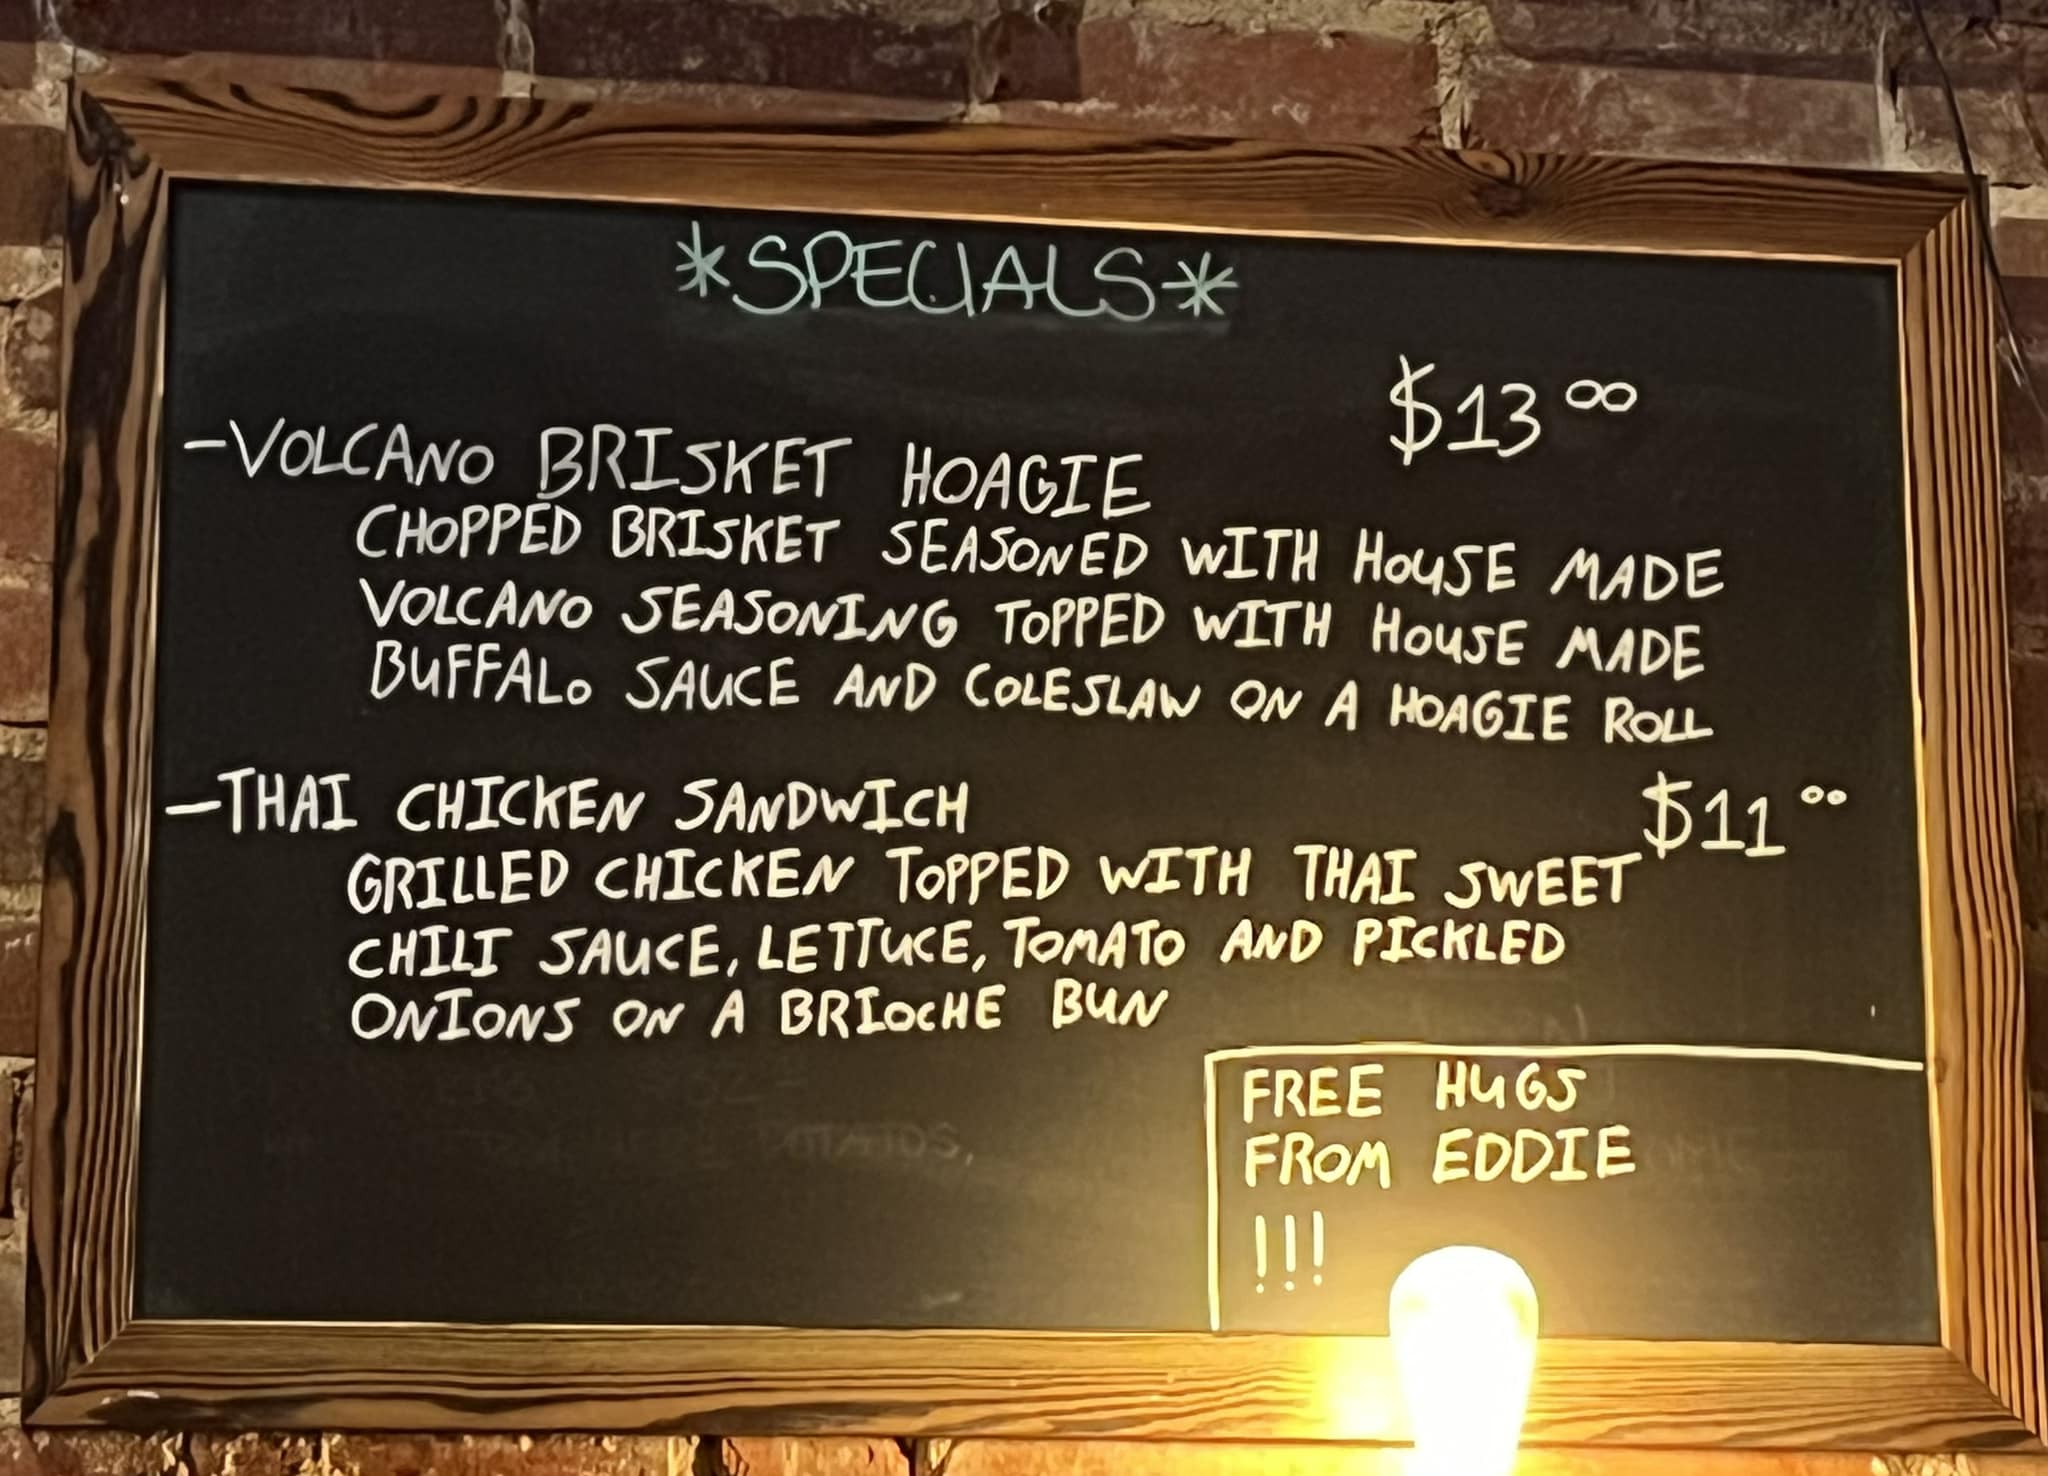 *SPECIALS*
-VOLCANO BRISKET HOAGIE $13.00
CHOPPED BRISKET SEASONED WITH HOUSE MADE
VOLCANO SEASONING TOPPED WITH HOUSE MADE
BUFFALO SAUCE AND COLESLAW ON A HOAGIE ROLL
-THAI CHICKEN SANDWICH $11.00
GRILLED CHICKEN TOPPED WITH THAI SWEET
CHILI SAUCE, LETTUCE, TOMATO AND PICKLED
ONIONS ON A BRIOCHE BUN
FREE HUGS
FROM EDDIE
!!!